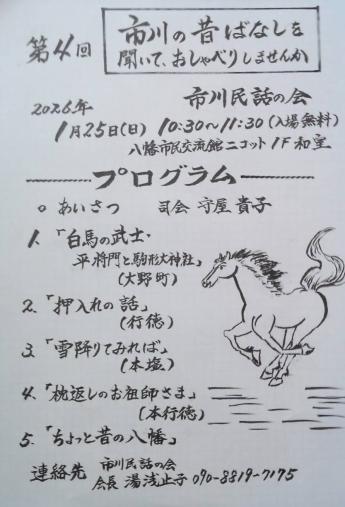 第4回
市川の昔ばなしを
聞いて、おしゃべりしませんか
2026年
市川民話の会
1月25日(日) 10:30~11:30(入場無料)
八幡市民交流館ニコット1F和室
プログラム
○ あいさつ 司会 守屋貴子
1.「白馬の武士・
平将門と駒形大神社」
(大野町)
2.「押入れの話」
(行徳)
3.「雪降りてみれば」
(本塩)
4.「枕返しのお祖師さま」
(本行徳)
5.「ちょっと昔の八幡」
連絡先 市川民話の会
会長 湯浅止子 090-8819-7175